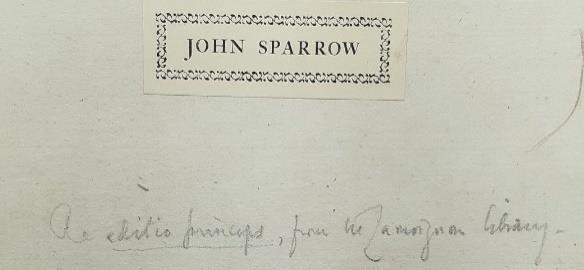 JOHN SPARROW
The editio princeps, from the Lamoignon library.